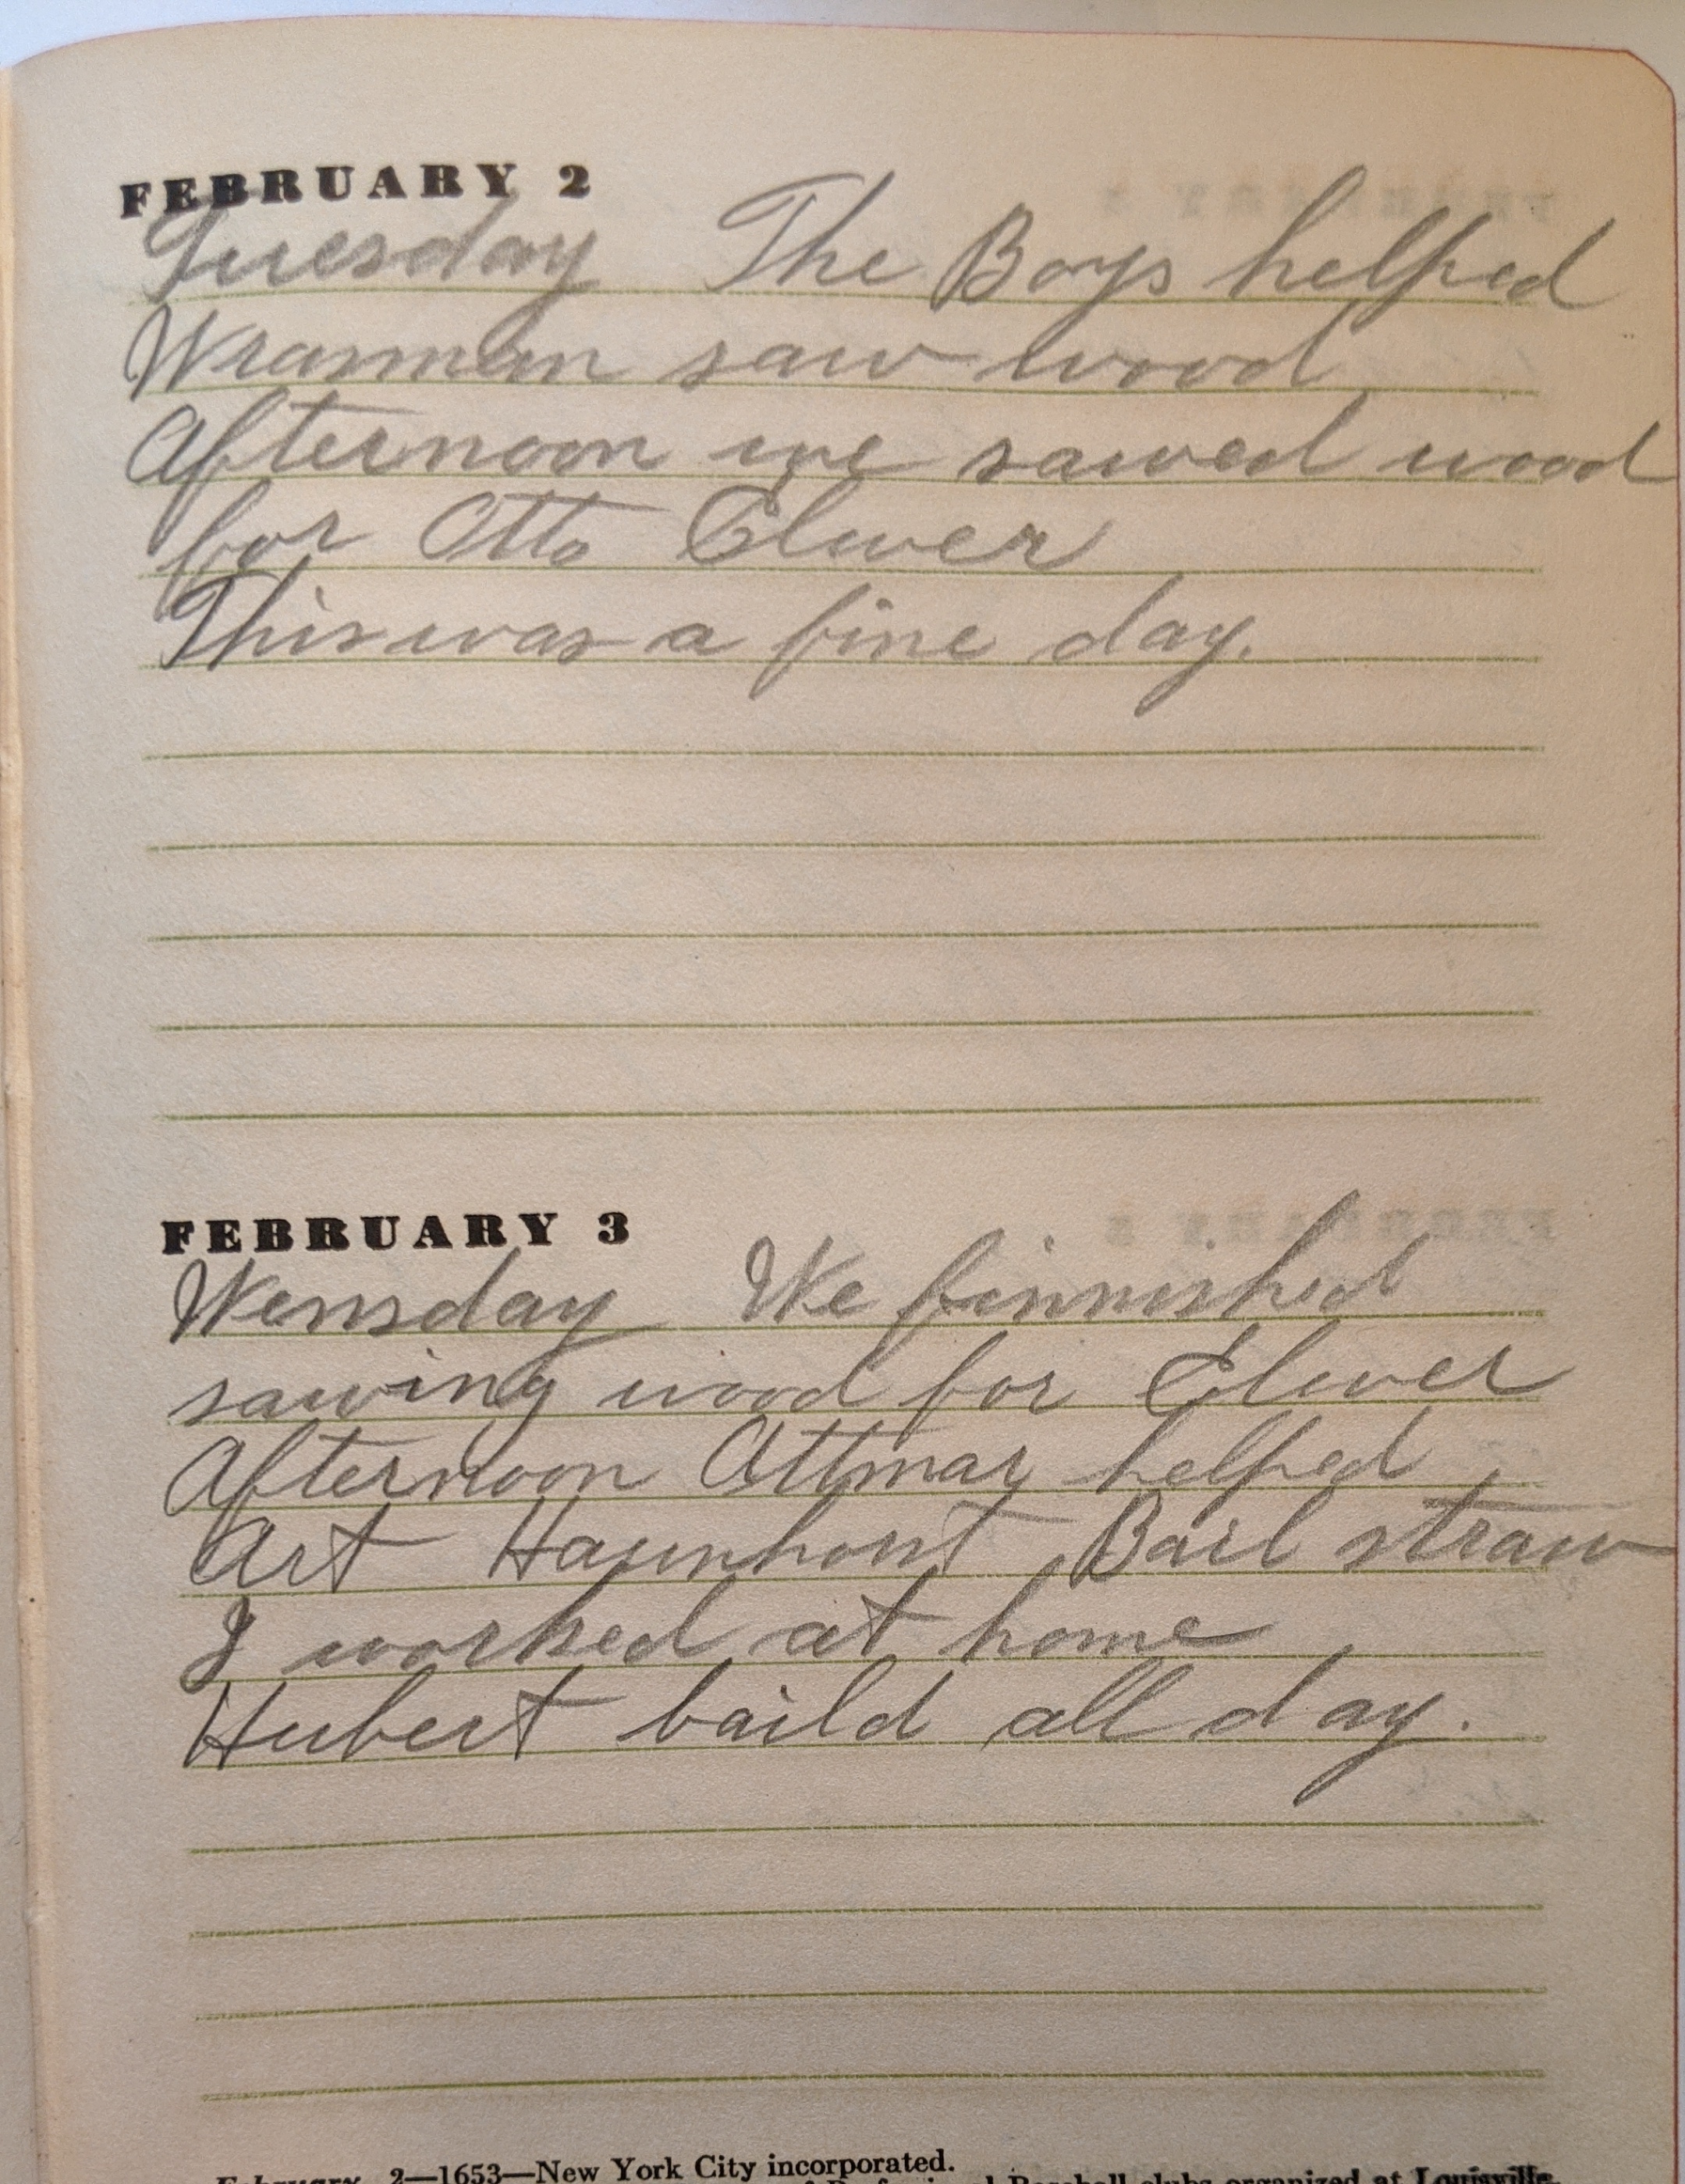 FEBRUARY 2
Tuesday The Boys helped
saw wood
Afternoon we sawed wood
for Otto Elwer
This was a fine day.
FEBRUARY 3
Wensday We finnished
sawing wood for Elwer
Afternoon Ottmar helped
Art Bail straw
I worked at home
Hubert baild all day.
February 2—1653—New York City incorporated.
Baseball clubs organized at Louisville.